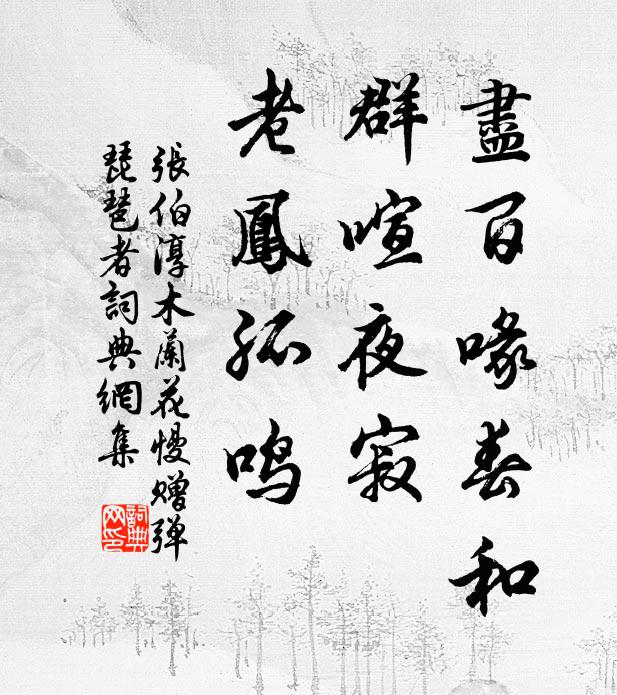 盡百喙春和
群喧夜寂
老鳳孤鸣
張伯淳木蘭花慢赠弹
琵琶者詞典網集
詞典
网印